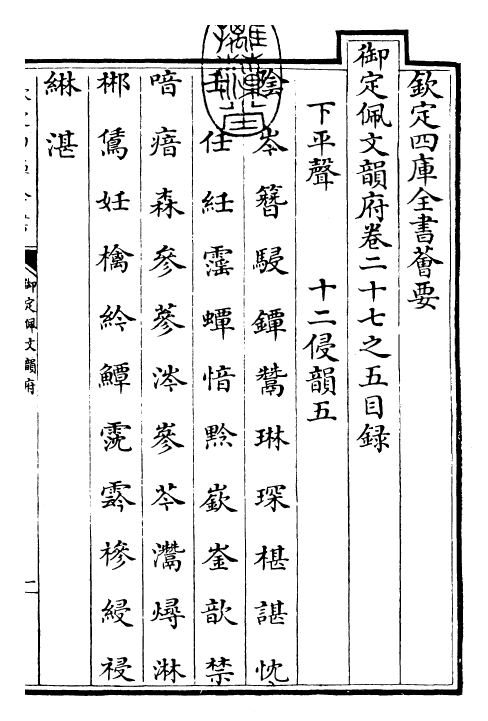 欽定四庫全書薈要
御定佩文韻府卷二十七之五目録
下平聲　十二侵韻五
陰岑簪駸鐔鬵琳琛椹諶忱
壬任紝霪蟫愔黔嶔崟歆禁
喑瘖森參蔘涔嵾芩灊燖淋
郴鬵妊檎紟鱏霃霠槮綅祲
綝湛
御定佩文韻府
二